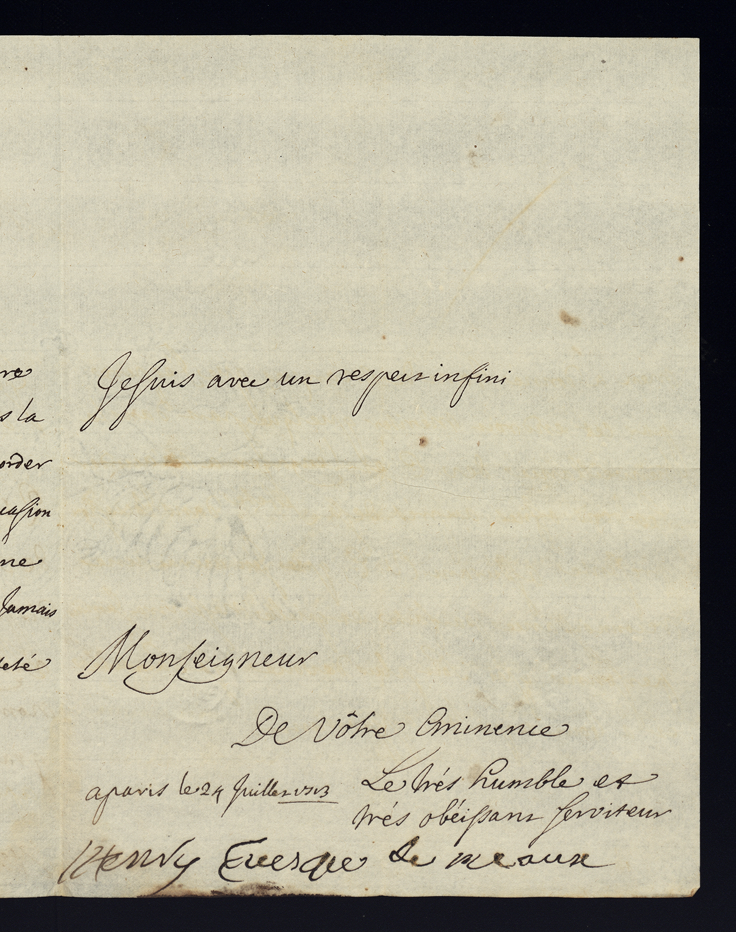 re
s la
order
casion
ne
Jamais
leté
Je suis avec un respect infini
Monseigneur
De Vôtre Eminence
a paris le 24 Juillet 1713
Le trés humble et
trés obéissant serviteur
Henry Evesque de meaux